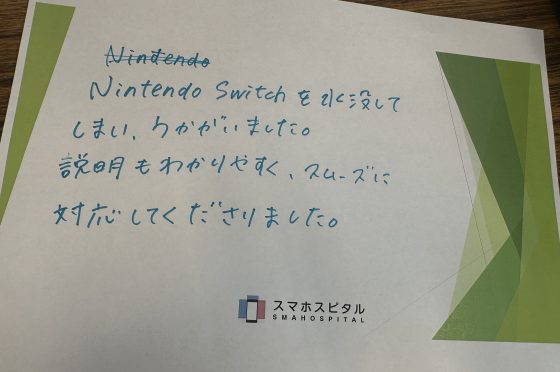 Nintendo
Nintendo Switchを水没して
しまい、うかがいました。
説明もわかりやすく、スムーズに
対応してくださりました。
スマホスピタル
SMAHOSPITAL